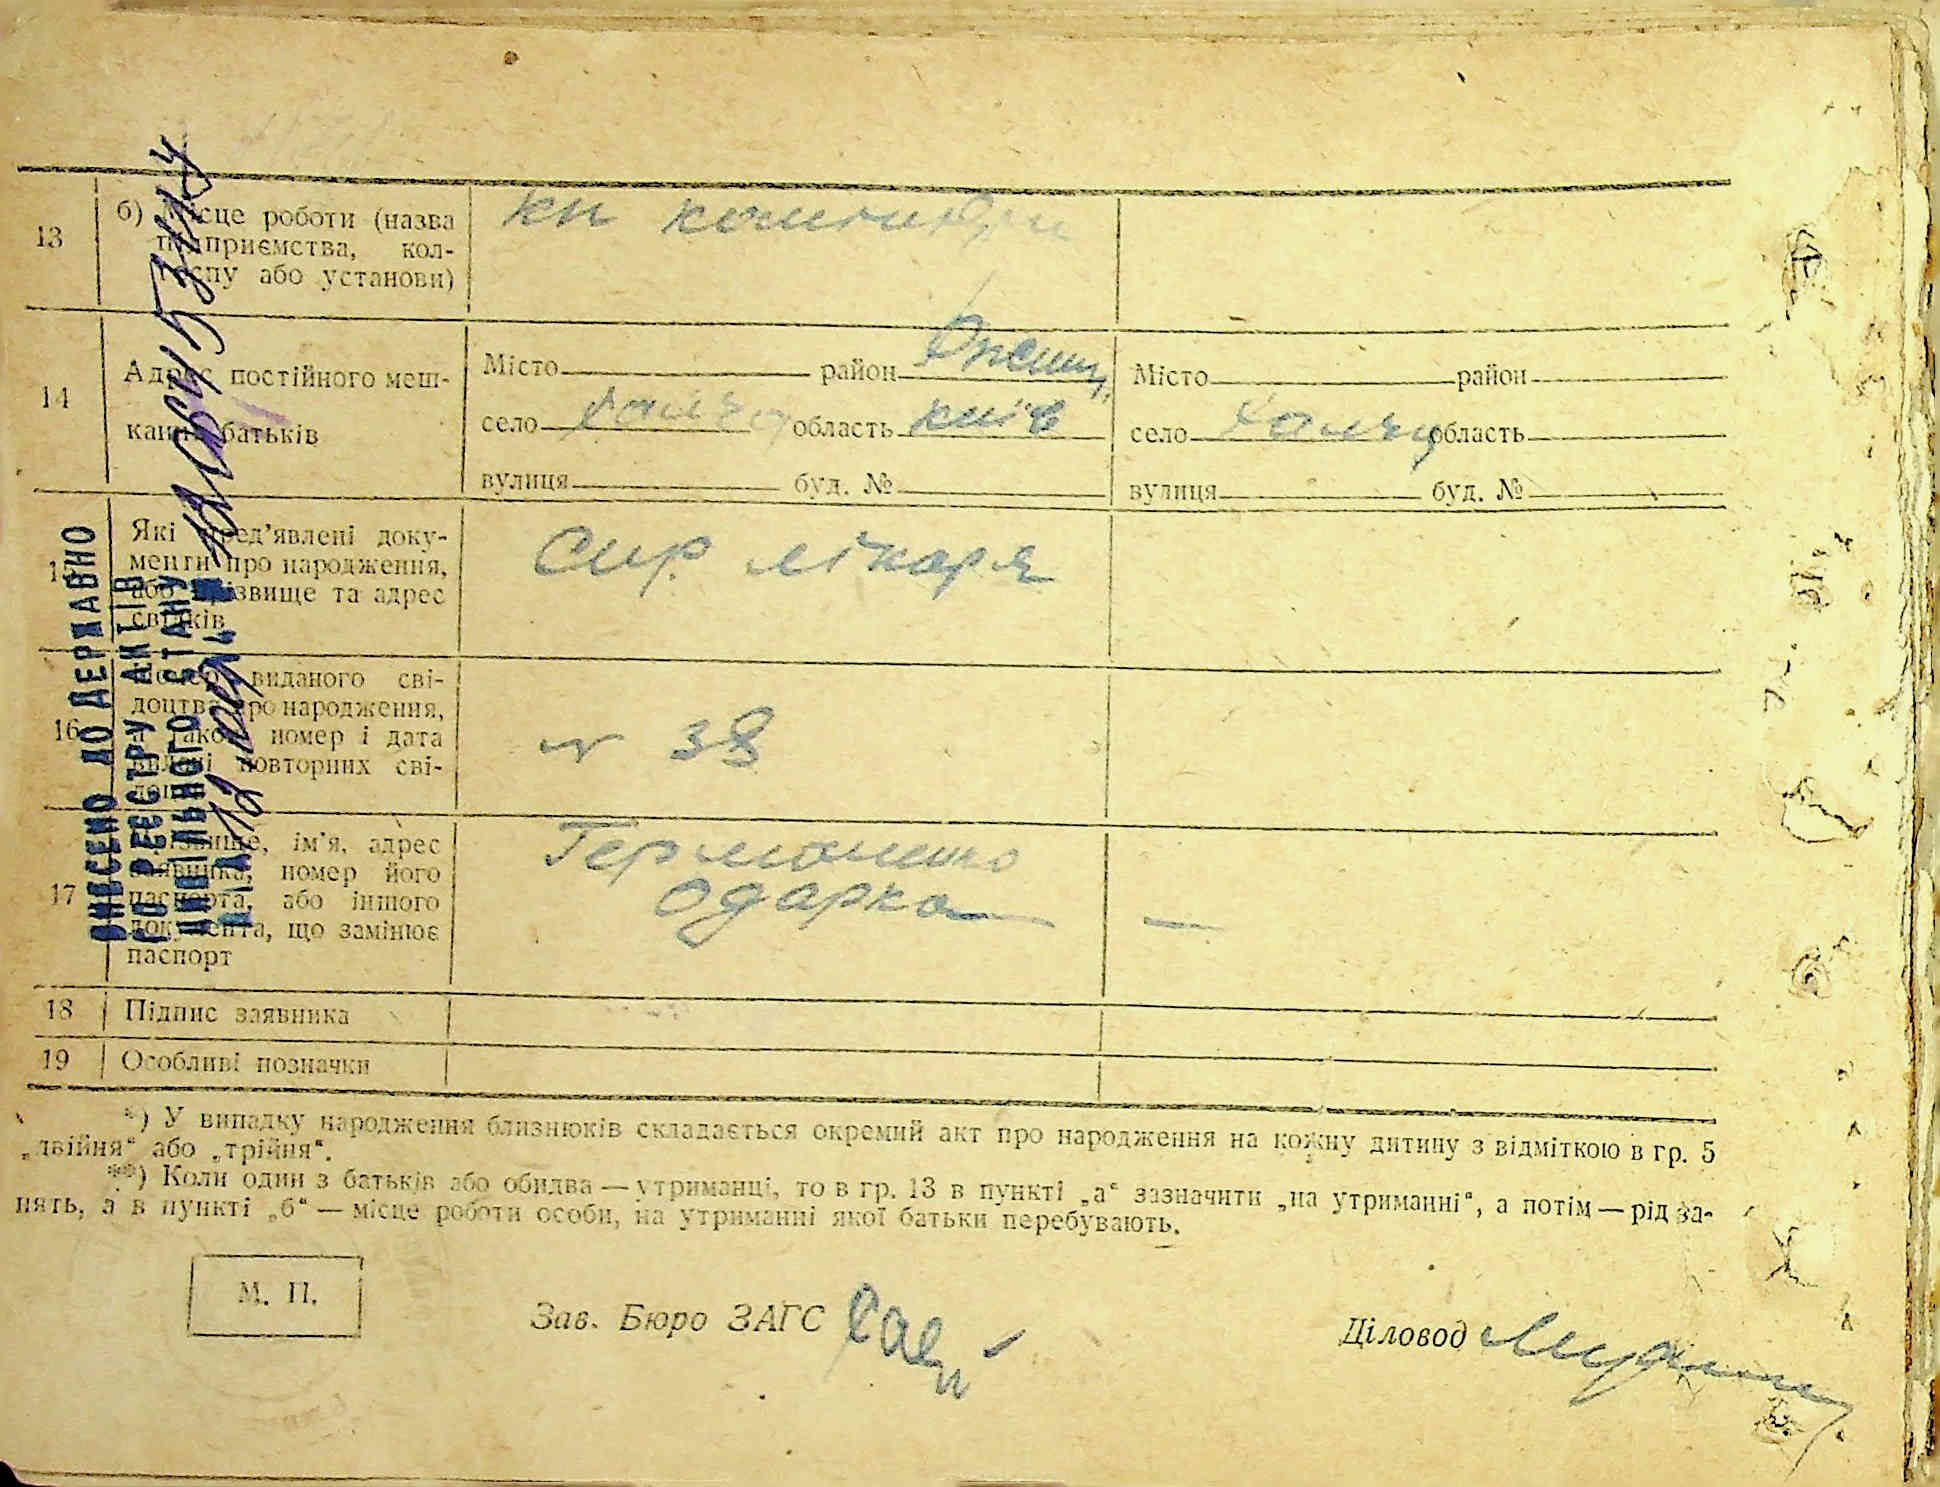 13
б) Місце роботи (назва
підприємства, кол-
госпу або установи)
кп
14
Адрес постійного меш-
кання батьків
Місто район
село область київ
вулиця буд. №
Місто район
село область
вулиця буд. №
15
Які пред’явлені доку-
менти про народження,
або прізвище та адрес
свідків
Спр. лікаря
16
Номер виданого сві-
доцтва про народження,
а також номер і дата
видачі повторних сві-
доцтв
№ 38
17
Прізвище, ім’я, адрес
заявника, номер його
паспорта, або іншого
документа, що замінює
паспорт
Одарка —
—
18 Підпис заявника
19 Особливі позначки
*) У випадку народження близнюків складається окремий акт про народження на кожну дитину з відміткою в гр. 5
„двійня“ або „трійня“.
**) Коли один з батьків або обидва — утриманці, то в гр. 13 в пункті „а“ зазначити „на утриманні“, а потім — рід за-
нять, а в пункті „б“ — місце роботи особи, на утриманні якої батьки перебувають.
М. П.
Зав. Бюро ЗАГС
Діловод
ВНЕСЕНО ДО ДЕРЖАВНО
ГО РЕЄСТРУ АКТІВ
ЦИВІЛЬНОГО СТАНУ